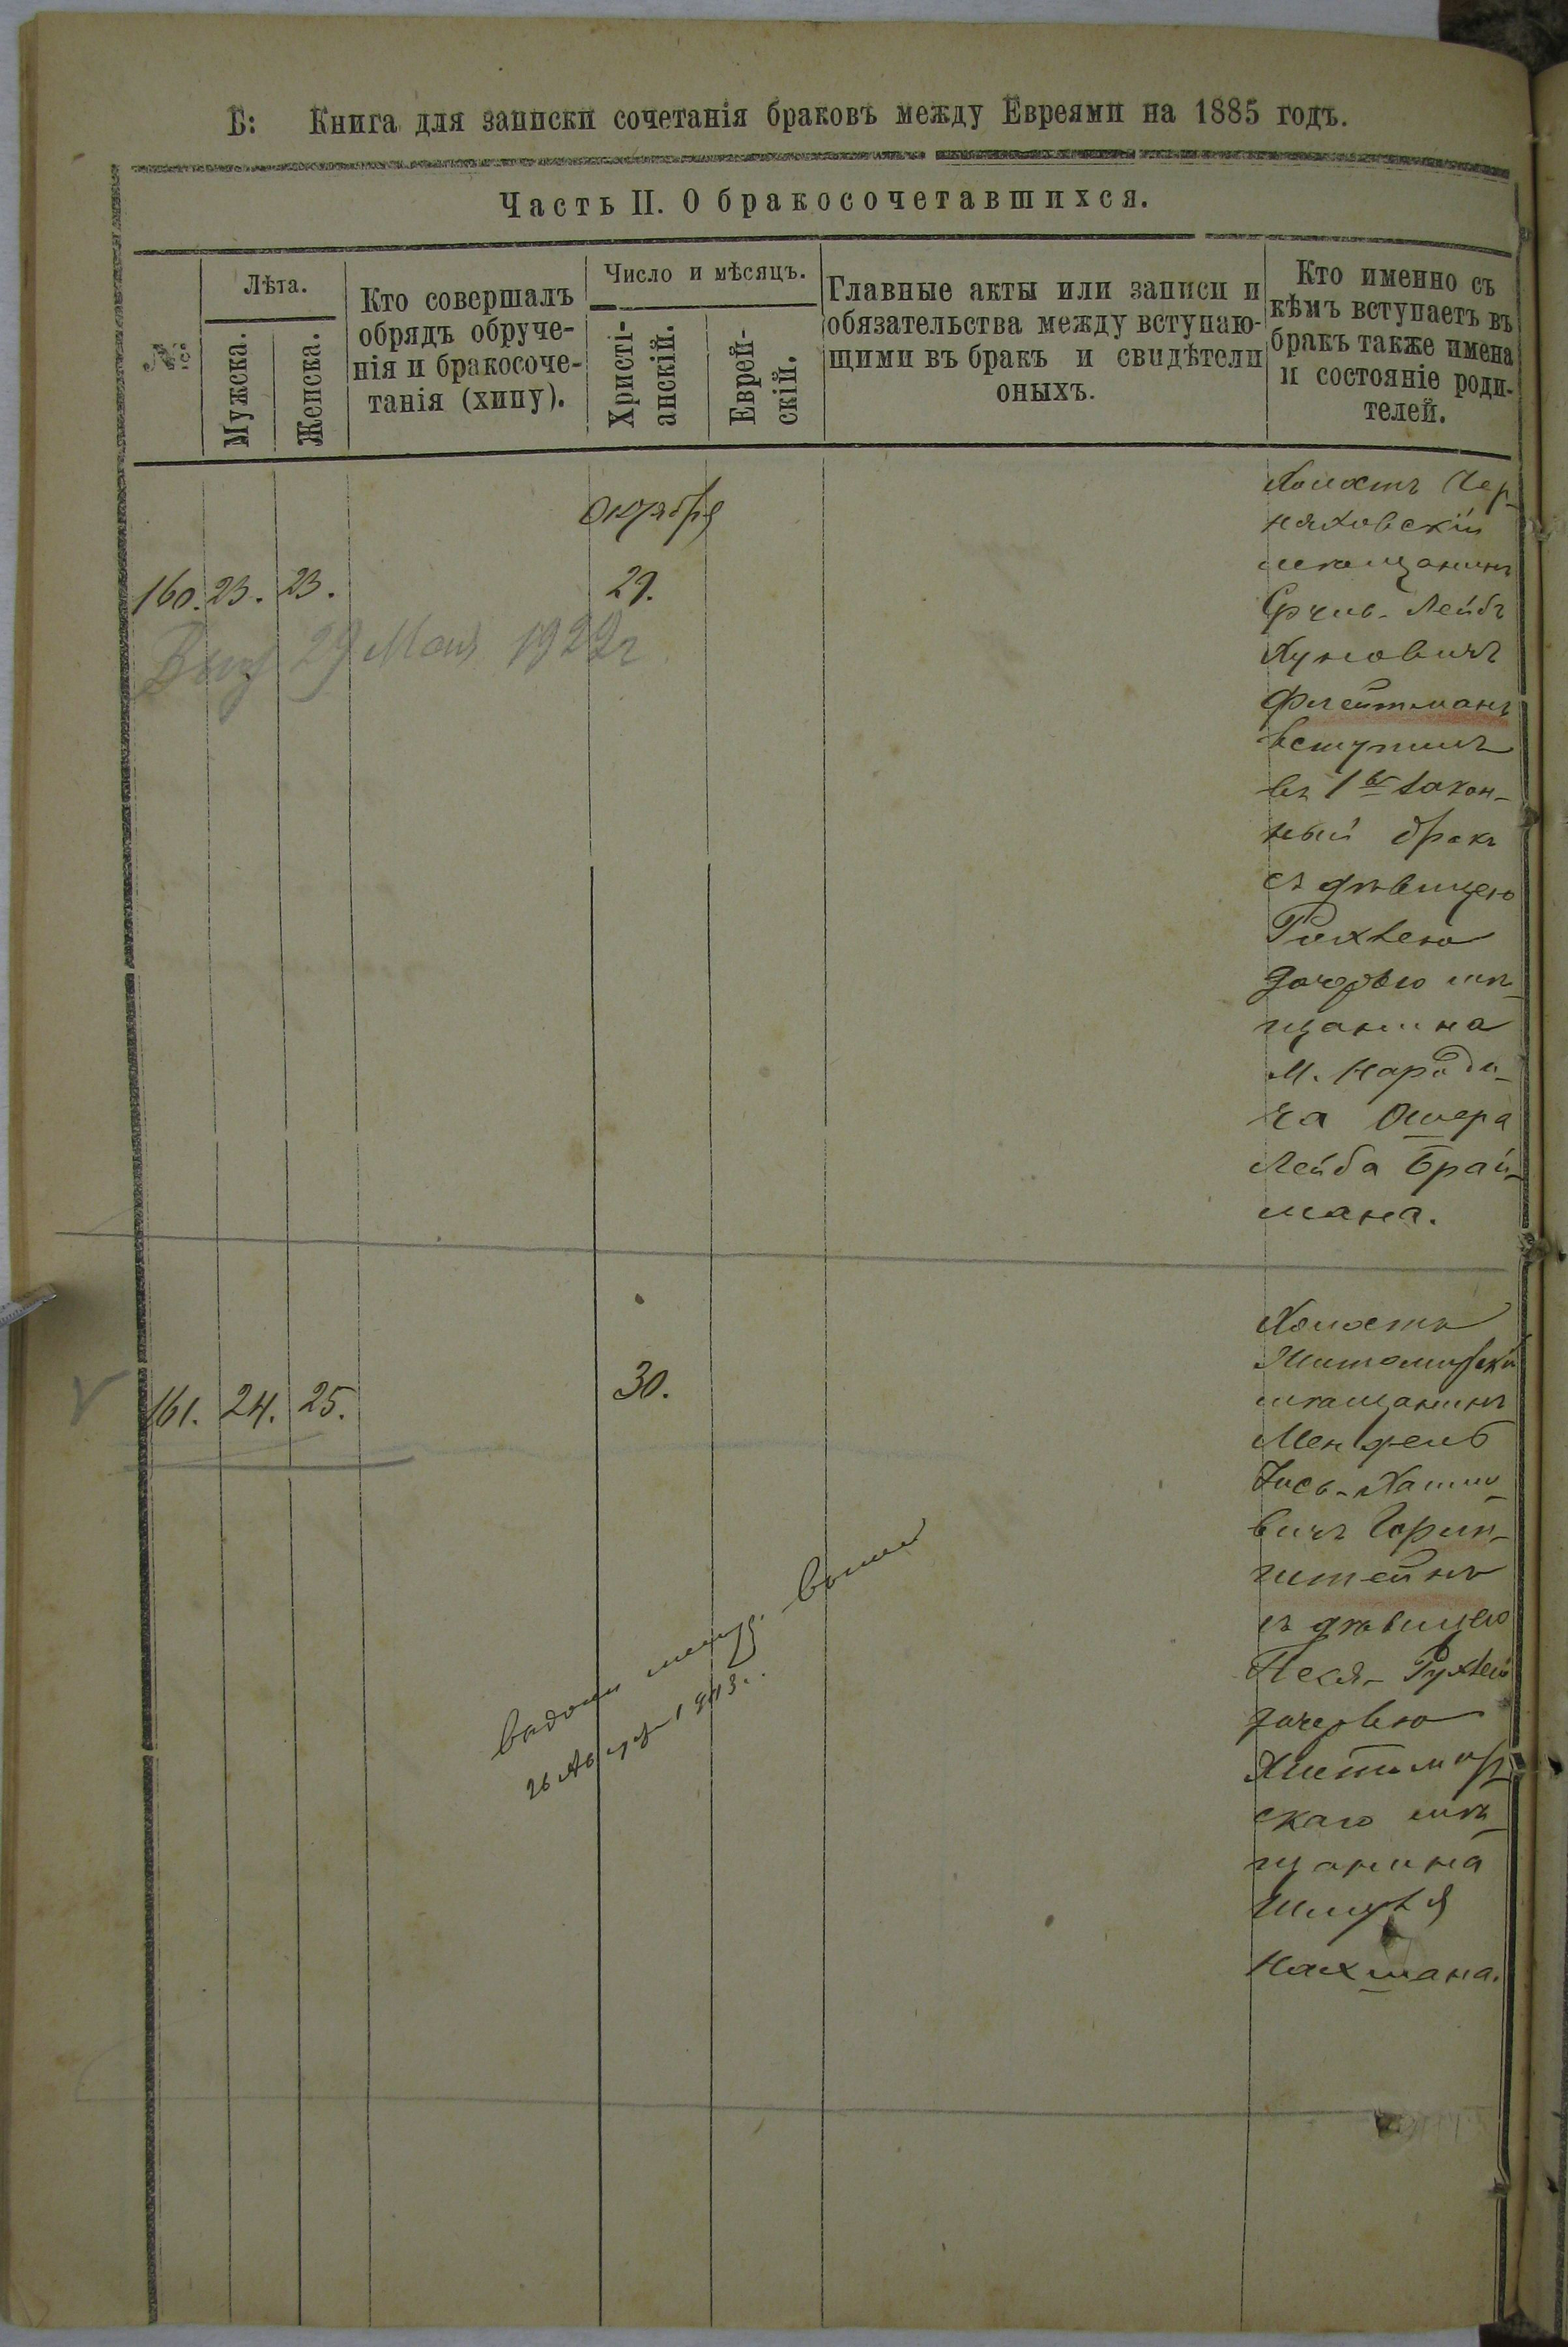 Б: Книга для записки сочетанія браковъ между Евреями на 1885 годъ.
Часть II. О бракосочетавшихся.
№
Лѣта.
Мужска.
Женска.
Кто совершалъ
обрядъ обруче-
нія и бракосоче-
танія (хипу).
Число и мѣсяцъ.
Христі-
анскій.
Еврей-
скій.
Главные акты или записи и
обязательства между вступаю-
щими въ бракъ и свидѣтели
оныхъ.
Кто именно съ
кѣмъ вступаетъ въ
бракъ также имена
и состояніе роди-
телей.
Октября
160. 23. 23. 29.
29 Мая 1922 г
Холостъ Чер-
няховскій
мѣщанинъ
Сруль-Лейбъ
Хуновичъ
Флейтманъ
вступилъ
въ 1й закон-
ный бракъ
съ дѣвицею
Рохлею
дочерью мѣ-
щанина
М. Народи-
ча Ошера
Лейба Брай-
мана.
161. 24. 25. 30.
Холостъ
Житомирскій
мѣщанинъ
Мендель
Іось-Хаимо-
вичъ Горин-
штейнъ
съ дѣвицею
Песя-Рухлею
дочерью
Житомир-
скаго мѣ-
щанина
Нахмана.